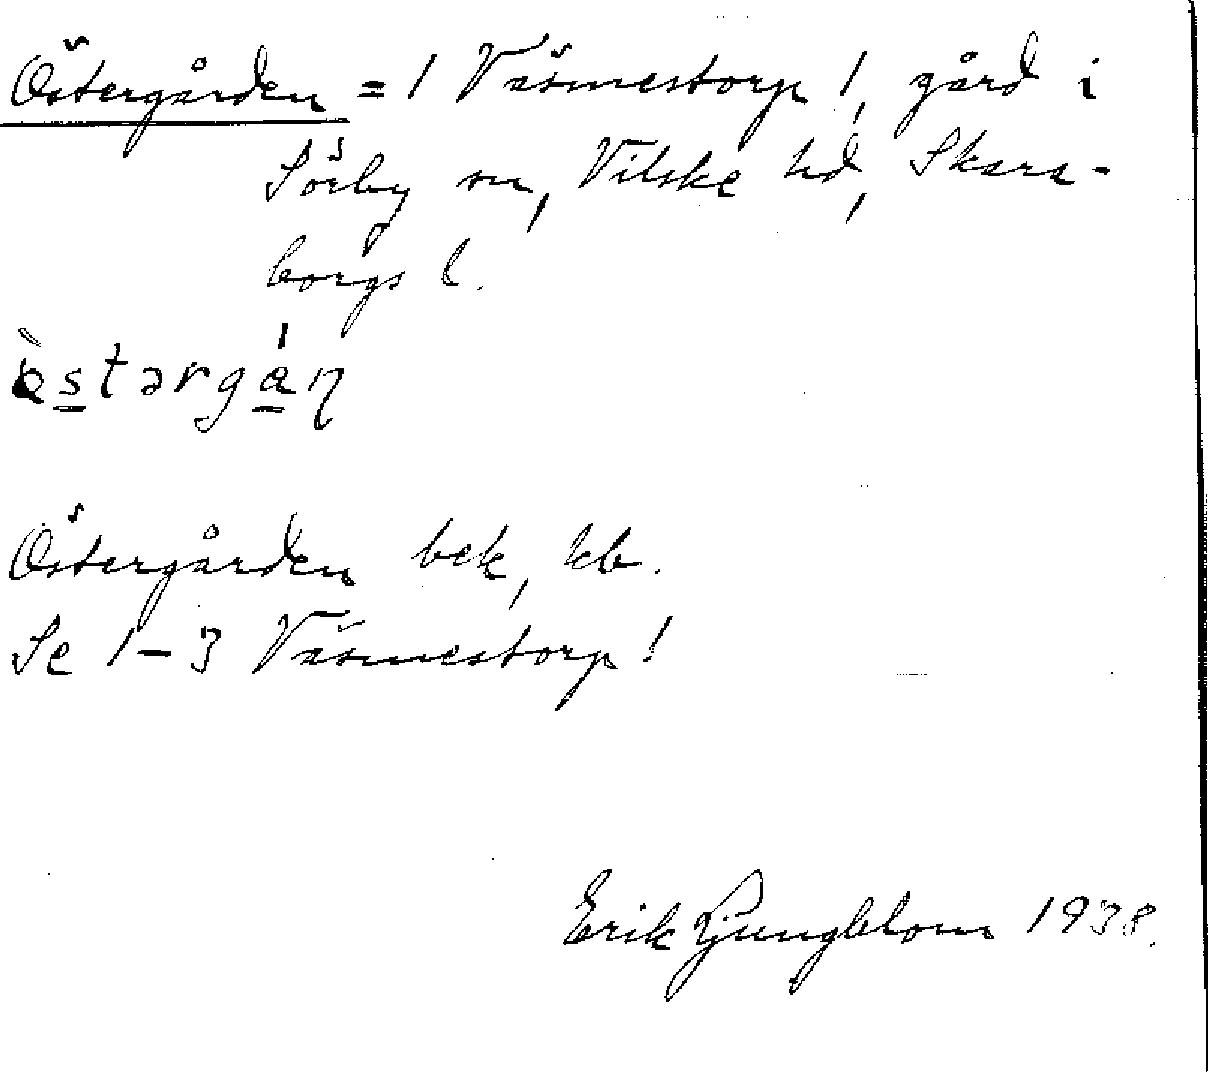 Östergården = 1 Väsmestorp !, gård i
Sörby sn, Vilske hd, Skara-
borgs l.
Östergården bek, kb.
Se 1-3 Väsmestorp !
Erik Ljungblom 1938.